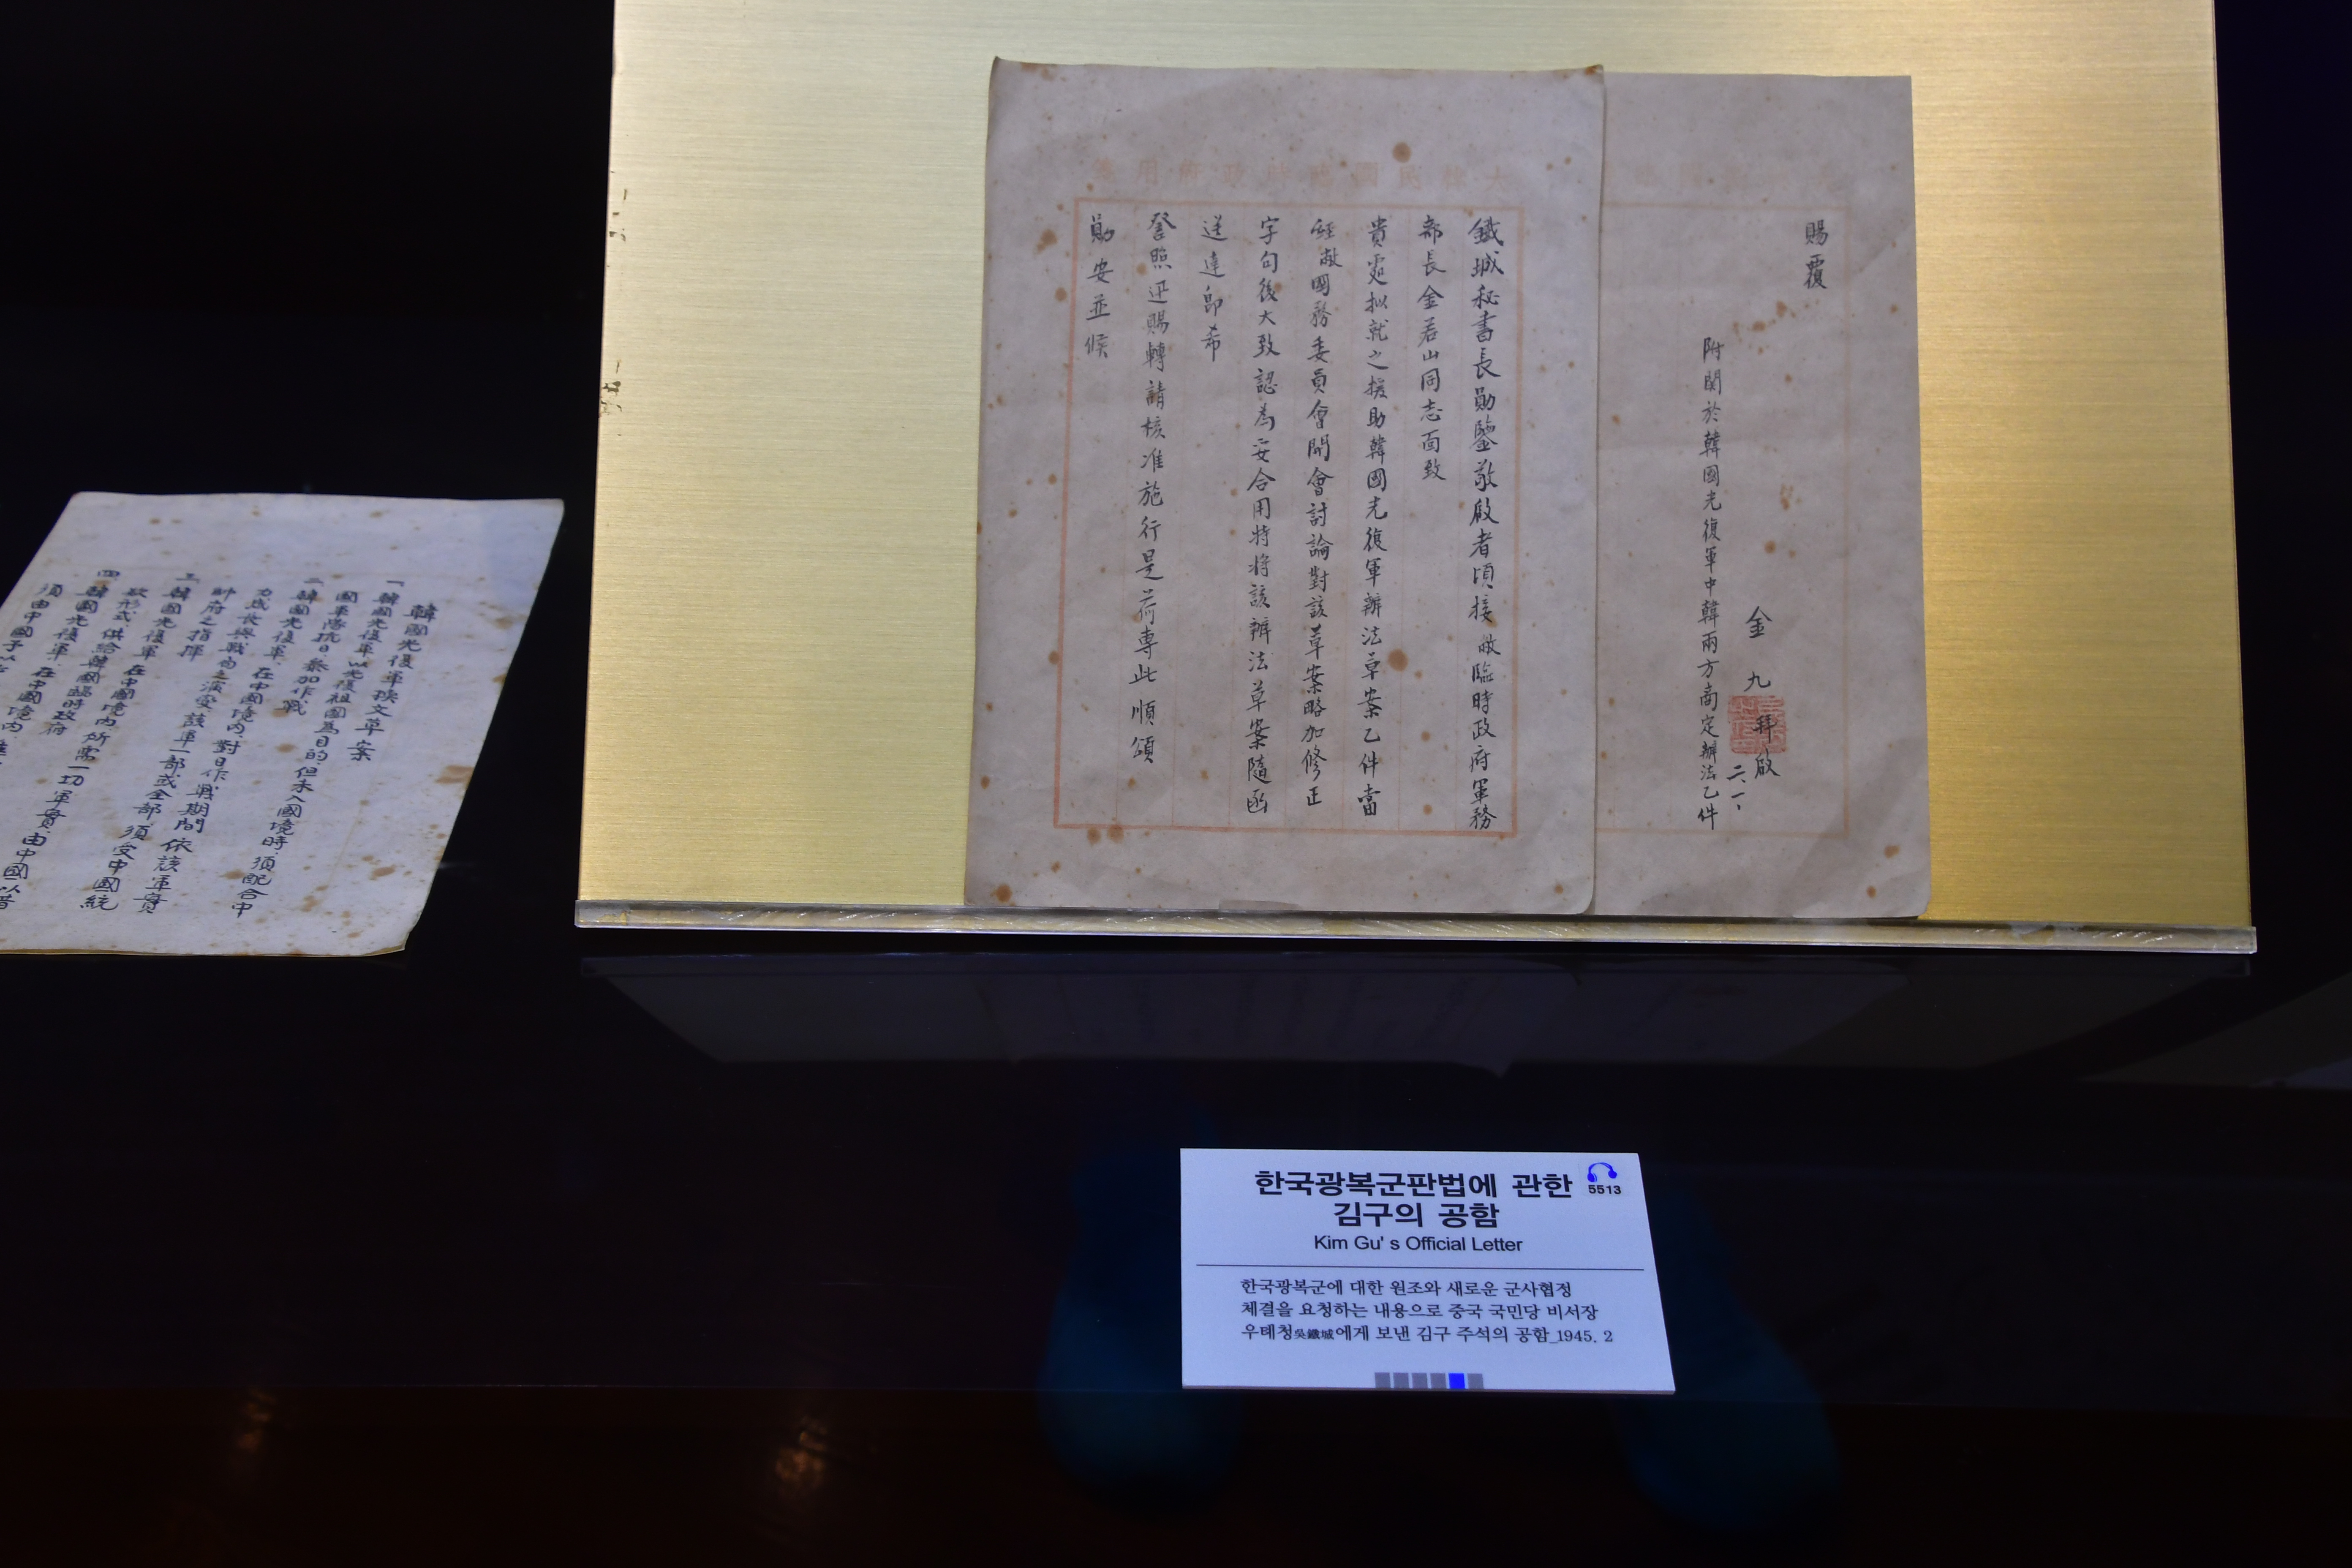 大韓民國臨時政府用箋
鐵城秘書長勛鑒敬啟者頃接敝臨時政府軍務
部長金若山同志面致
貴處拟就之援助韓國光復軍辦法草案乙件當
經敝國務委員會開會討論對該草案略加修正
字句後大致認為妥合用特將該辦法草案隨函
送達卽希
詧照迅賜轉請核准施行是荷專此順頌
勛安並候
賜覆
金九拜啟
二、一、
附關於韓國光復軍中韓兩方商定辦法乙件
韓國光復軍換文草案
一 韓國光復軍以光復祖國為目的但未入國境時須配合中
國軍隊抗日參加作戰
二 韓國光復軍、在中國境內、對日作戰期間依該軍實
力成長與戰局之演變該軍一部或全部須受中國統
帥府之指揮
三 韓國光復軍在中國境內所需一切軍實由中國以借
款形式供給韓國臨時政府
四 韓國光復軍、在中國境內、
須由中國予以
한국광복군판법에 관한
김구의 공함
5513
Kim Gu' s Official Letter
한국광복군에 대한 원조와 새로운 군사협정
체결을 요청하는 내용으로 중국 국민당 비서장
우톄청吳鐵城에게 보낸 김구 주석의 공함_1945. 2